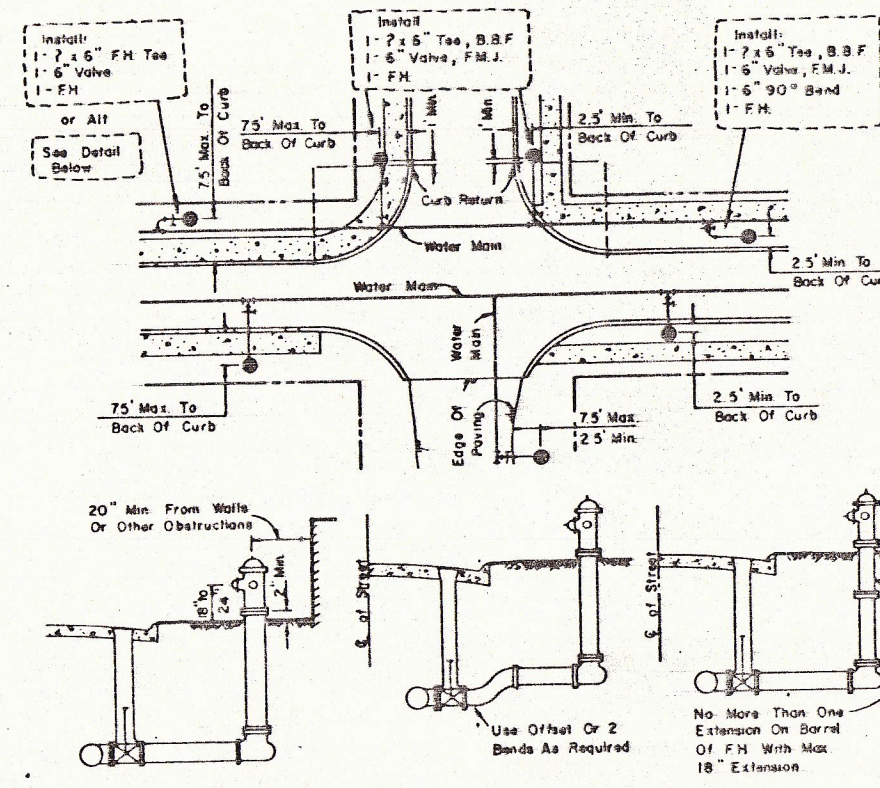 Install:
1- ? x 6" F.H. Tee
1- 6" Valve
1- F.H.
or Alt
See Detail
Below
Install
1- ? x 6" Tee, B.B.F.
1- 6" Valve, F.M.J.
1- F.H.
Install:
1- ? x 6" Tee, B.B.F.
1- 6" Valve, F.M.J.
1- 6" 90° Bend
1- F.H.
7.5' Max. To
Back Of Curb
7.5' Max. To
Back Of Curb
1' Min
1' Min
2.5' Min. To
Back Of Curb
Curb Return
Water Main
Water Main
2.5' Min To
Back Of Cu
Water
Main
7.5' Max. To
Back Of Curb
Edge Of
Paving
7.5' Max.
2.5' Min.
2.5' Min. To
Back Of Curb
20" Min. From Walls
Or Other Obstructions
18" to
24"
2" Min.
℄ of Street
Use Offset Or 2
Bends As Required
℄ of Street
No More Than One
Extension On Barrel
Of F.H. With Max.
18" Extension